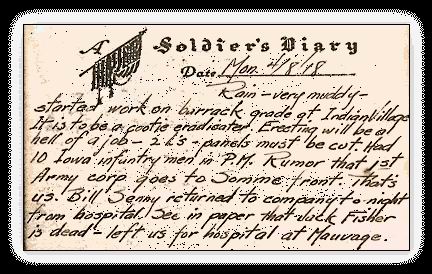 A Soldier's Diary
Date Mon. 4/8/18
Rain - very muddy -
started work on barrack grade at Indian Village
It is to be a cootie eradicater. Erecting will be a
hell of a job - 2 & 3 - panels must be cut. Had
10 Iowa infuntry men in P.M. Rumor that 1st
Army corp goes to Somme front - that's
us. Bill Senny returned to company to-night
from hospital. See in paper that Jack Fisher
is dead - left us for hospital at Mauvage.